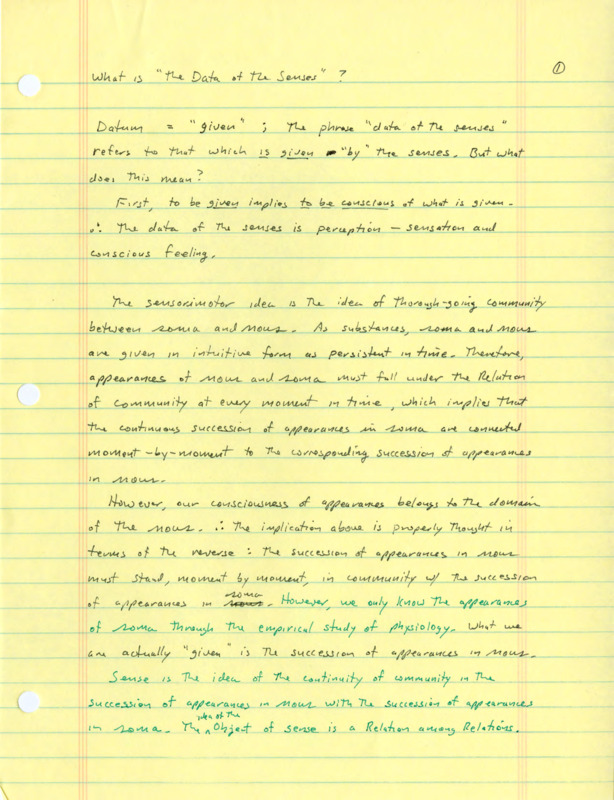 ①
What is "the Data of the Senses"?
Datum = "given"; the phrase "data of the senses"
refers to that which is given "by" the senses. But what
does this mean?
First, to be given implies to be conscious of what is given.
∴ the data of the senses is perception – sensation and
conscious feeling.
The sensorimotor idea is the idea of thorough-going community
between soma and nous. As substances, soma and nous
are given in intuitive form as persistent in time. Therefore,
appearances of nous and soma must fall under the Relation
of community at every moment in time, which implies that
the continuous succession of appearances in soma are connected
moment-by-moment to the corresponding succession of appearances
in nous.
However, our consciousness of appearances belongs to the domain
of the nous. ∴ the implication above is properly thought in
terms of the reverse: the succession of appearances in nous
must stand, moment by moment, in community w/ the succession
of appearances in soma. However, we only know the appearances
of soma through the empirical study of physiology. What we
are actually "given" is the succession of appearances in nous.
Sense is the idea of the continuity of community in the
succession of appearances in nous with the succession of appearances
in soma. The idea of the Object of sense is a Relation among Relations.